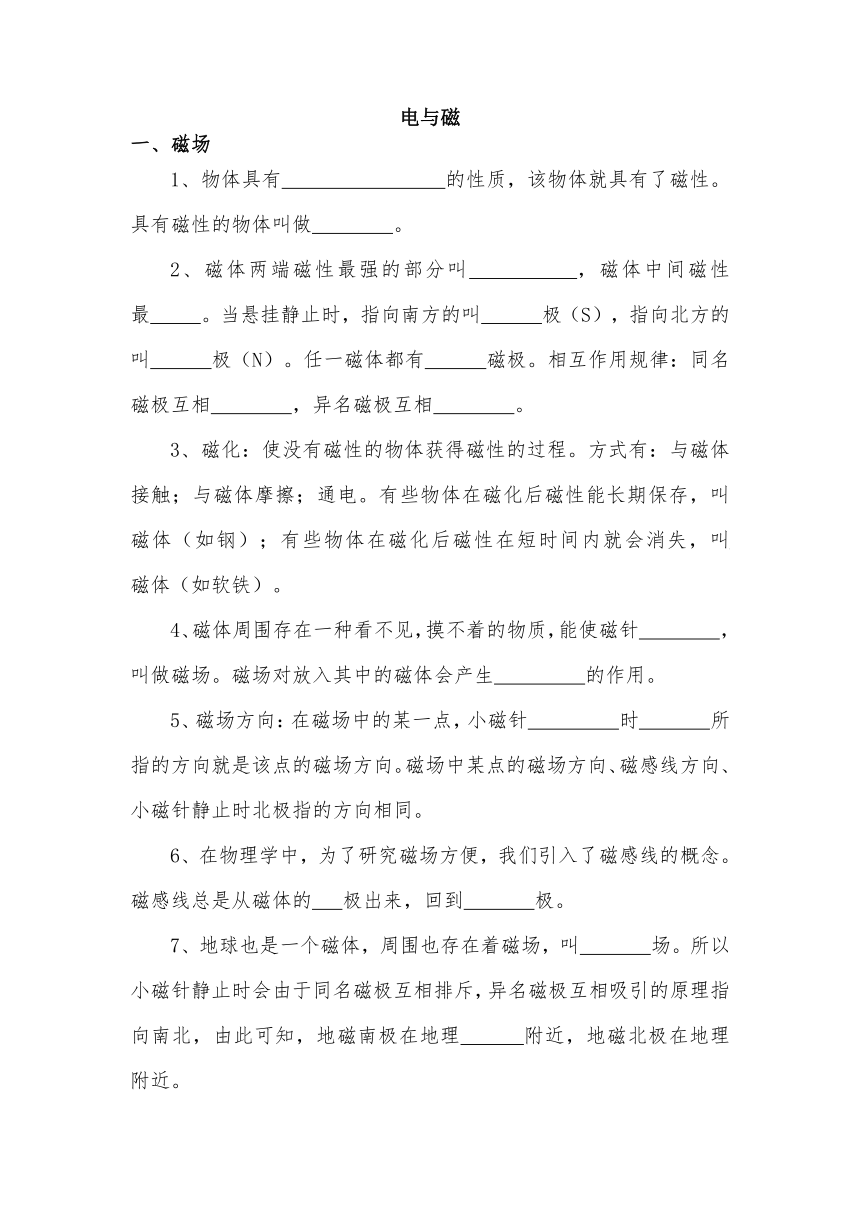 电与磁
一、磁场
1、物体具有________________的性质，该物体就具有了磁性。
具有磁性的物体叫做________。
2、磁体两端磁性最强的部分叫__________，磁体中间磁性
最_____。当悬挂静止时，指向南方的叫______极（S），指向北方的
叫______极（N）。任一磁体都有______磁极。相互作用规律：同名
磁极互相________，异名磁极互相________。
3、磁化：使没有磁性的物体获得磁性的过程。方式有：与磁体
接触；与磁体摩擦；通电。有些物体在磁化后磁性能长期保存，叫
磁体（如钢）；有些物体在磁化后磁性在短时间内就会消失，叫
磁体（如软铁）。
4、磁体周围存在一种看不见，摸不着的物质，能使磁针________，
叫做磁场。磁场对放入其中的磁体会产生_________的作用。
5、磁场方向：在磁场中的某一点，小磁针_________时_______所
指的方向就是该点的磁场方向。磁场中某点的磁场方向、磁感线方向、
小磁针静止时北极指的方向相同。
6、在物理学中，为了研究磁场方便，我们引入了磁感线的概念。
磁感线总是从磁体的___极出来，回到_______极。
7、地球也是一个磁体，周围也存在着磁场，叫_______场。所以
小磁针静止时会由于同名磁极互相排斥，异名磁极互相吸引的原理指
向南北，由此可知，地磁南极在地理______附近，地磁北极在地理
附近。